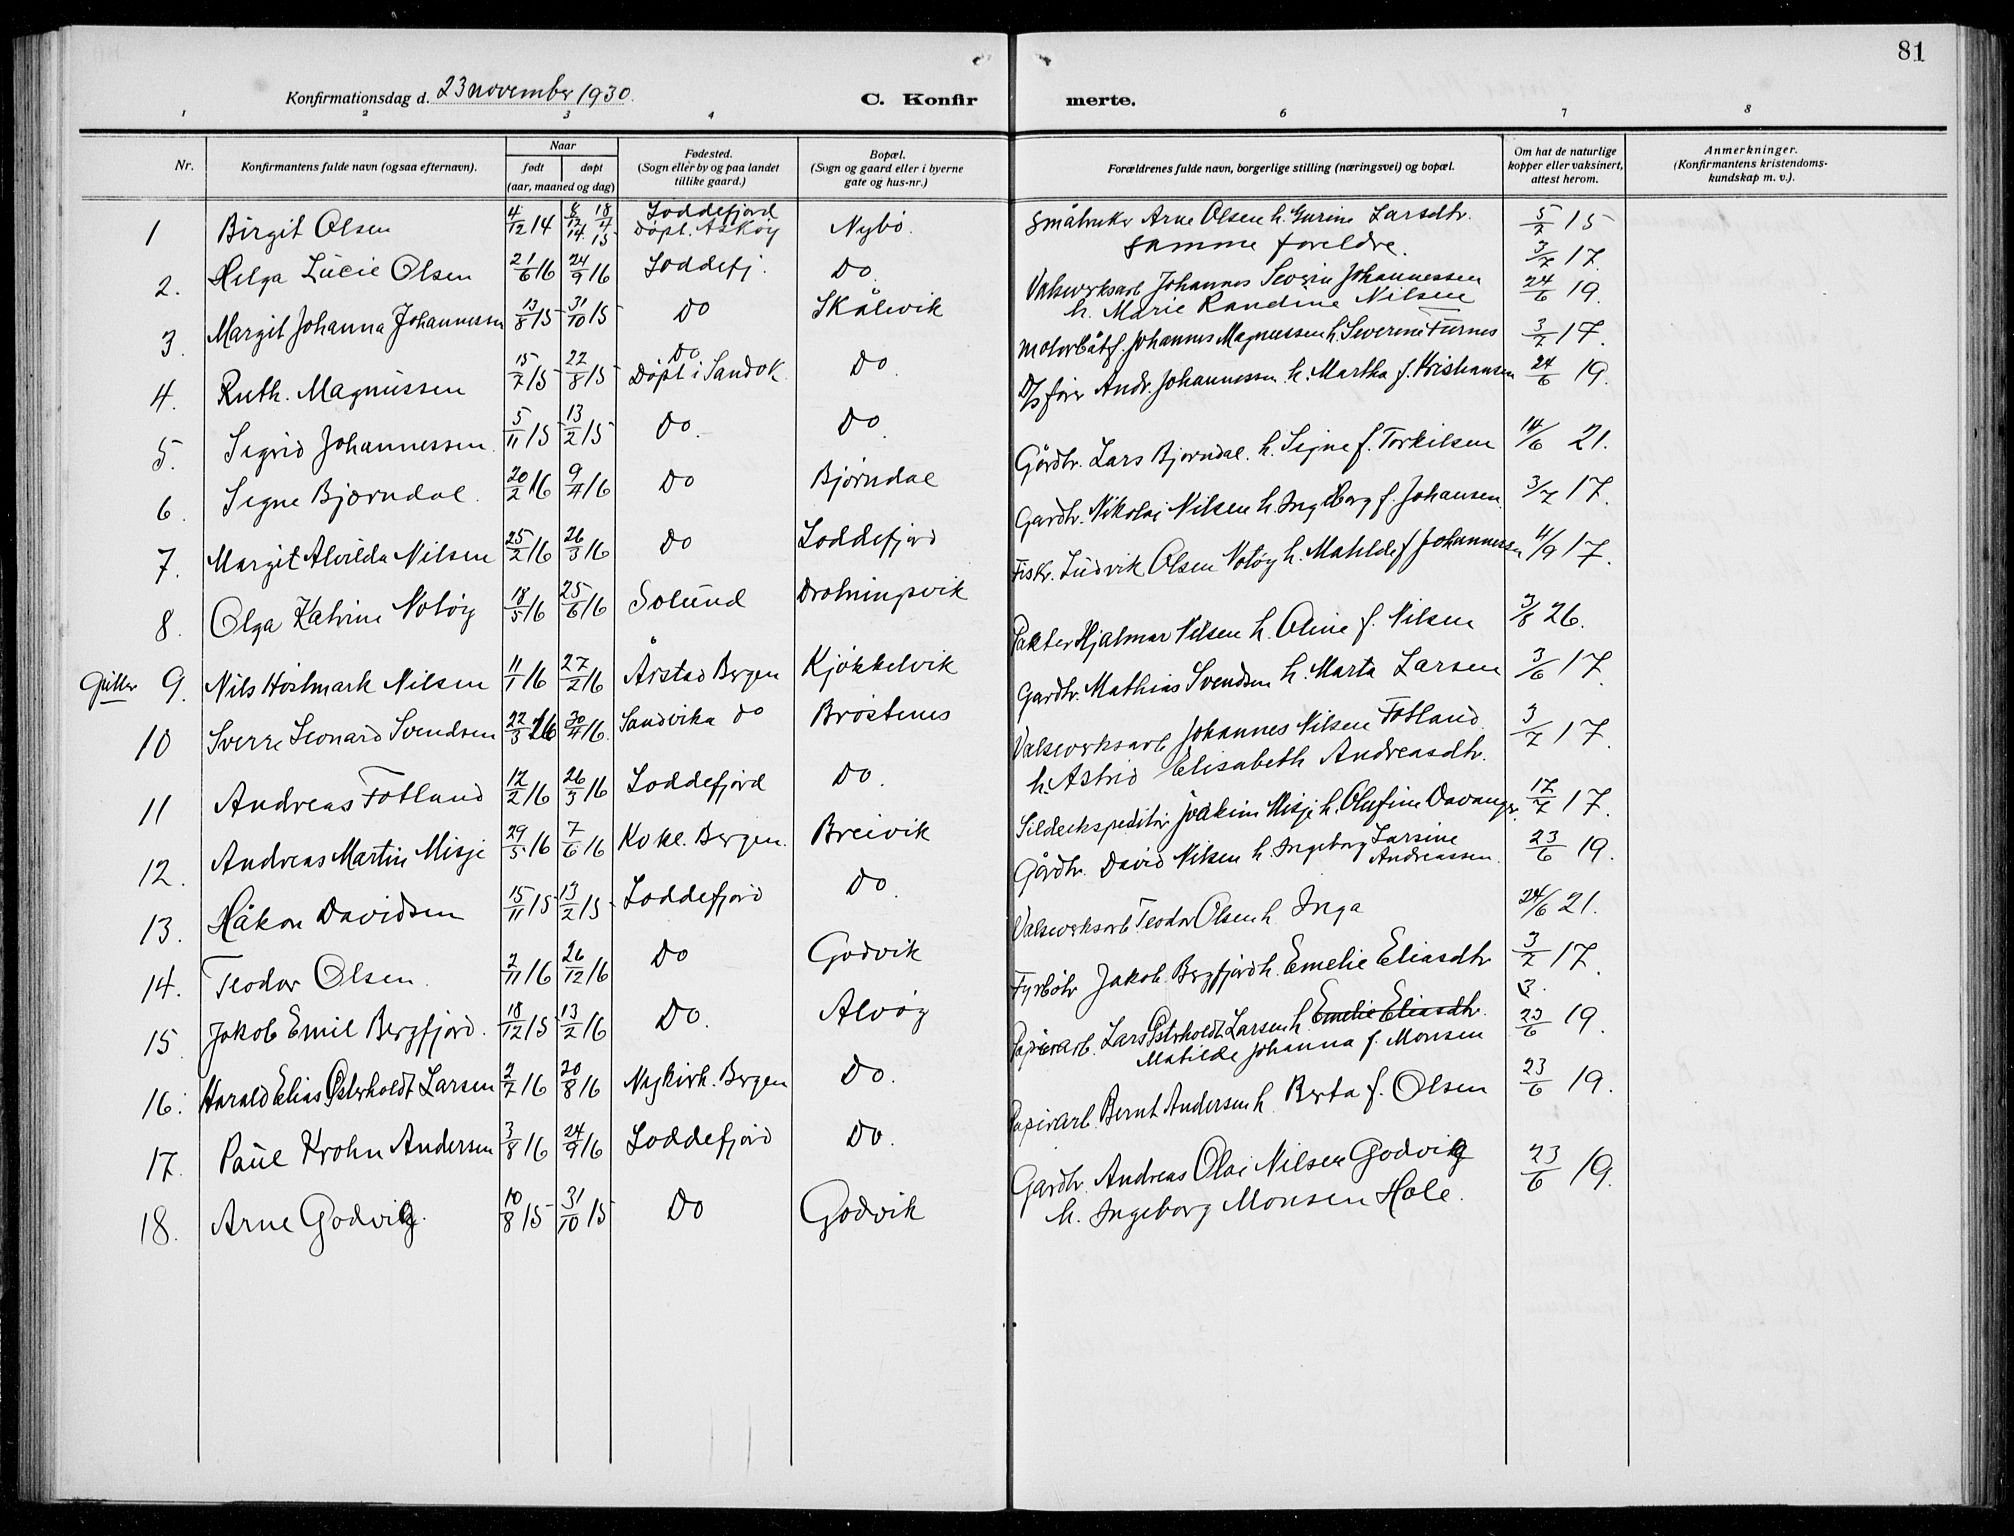 81
Konfirmationsdag d. 23 november 1930.
C. Konfir merte.
1 2 3 4 6 7 8
Nr.
Konfirmantens fulde navn (ogsaa efternavn).
Naar
født døpt
(aar, maaned og dag)
Fødested.
(Sogn eller by og paa landet
tillike gaard.)
Bopæl.
(Sogn og gaard eller i byerne
gate og hus-nr.)
Forældrenes fulde navn, borgerlige stilling (næringsvei) og bopæl.
Om hat de naturlige
kopper eller vaksinert,
attest herom.
Anmerkninger.
(Konfirmantens kristendoms-
kundskap m. v.).
1 Birgit Olsen 4/12 14 18/4 15 Loddefjord Døpt. Askøy Nybø. Småbruker Arne Olsen h. Gurine Larsdtr. 5/2 15
2. Helga Lucie Olsen 21/6 16 24/9 16 Loddefj. Do. samme foreldre. 3/7 17.
3. Margit Johanna Johannessen 13/8 15 31/10 15 Do Skålevik Valseverksarb Johannes Severin Johannessen 24/6 19.
h. Marie Randine Nilsen
4. Ruth. Magnussen 15/7 15 22/8 15 Do Døpt i Sandvk. Do. Motorbåtf. Johannes Magnussen h. Severine Furnes 3/7 17.
5. Sigrid Johannessen. 5/11 15 13/2 15 Do. Do. D/s fører Andr. Johannessen h. Martha f. Kristiansen 24/6 19.
6. Signe Bjørndal. 20/2 16 9/4 16 Do Bjørndal Gårdbr. Lars Bjørndal. h. Signe f. Torkilsen 14/6 21.
7. Margit Alvilda Nilsen 25/2 16 26/3 16 Do Loddefjord Gardbr. Nikolai Nilsen h. Ingeborg f. Johansen 3/7 17.
8. Olga Katrine Notøy 18/5 16 25/6 16 Solund Drotningsvik Fiskr. Ludvik Olsen Notøy h. Matilde f Johannessen 4/9 17.
Gutter 9. Nils Høstmark Nilsen 11/1 16 27/2 16 Årstad Bergen Kjøkkelvik Pakter Hjalmar Nilsen h. Oline f. Nilsen 3/8 26.
10 Sverre Leonard Svendsen 22/3 16 30/4 16. Sandvika do Brøstenes Gardbr. Mathias Svendsen h. Marta Larsen 3/6 17.
11 Andreas Fotland 12/2 16 26/3 16 Loddefjord Do. Valseverksarb Johannes Nilsen Fotland. 3/7 17.
h. Astrid Elisabeth Andreasdtr.
12. Andreas Martin Misje 29/5 16 7/6 16 Ko kl. Bergen. Breivik Sildeekspeditør Joakim Misje h. Olufine Davanger. 17/7 17.
13. Håkon Davidsen 15/11 15 13/2 15 Loddefjord Do. Gårdbr. David Nilsen h. Ingeborg Larsine Andreassen. 23/6 19.
14. Teodor Olsen. 2/11 16 26/12 16 Do Godvik Valseverksarb. Teodor Olsen h. Inga 24/6 21.
15. Jakob Emil Bergfjord. 18/12 15 13/2 16 Do. Alvøy Fyrbøter Jakob Bergfjord h. Emelie Eliasdtr 3/7 17.
3.
16. Harald Elias Østerholdt Larsen 2/7 16 20/8 16 Nykirk. Bergen Do. Papirarb. Lars Østerholdt Larsen h. Emelie Eliasdtr. 23/6 19.
Matilde Johanna f. Monsen
17. Paul Krohn Andersen 3/8 16 24/9 16 Loddefjord Do. Papirarb. Bernt Andersen h. Berta f. Olsen 23/6 19.
18. Arne Godvig. 10/8 15 31/10 15 Do Godvik Gardbr. Andreas Olai Nilsen Godvig 23/6 19.
h. Ingeborg Monsen Hole.